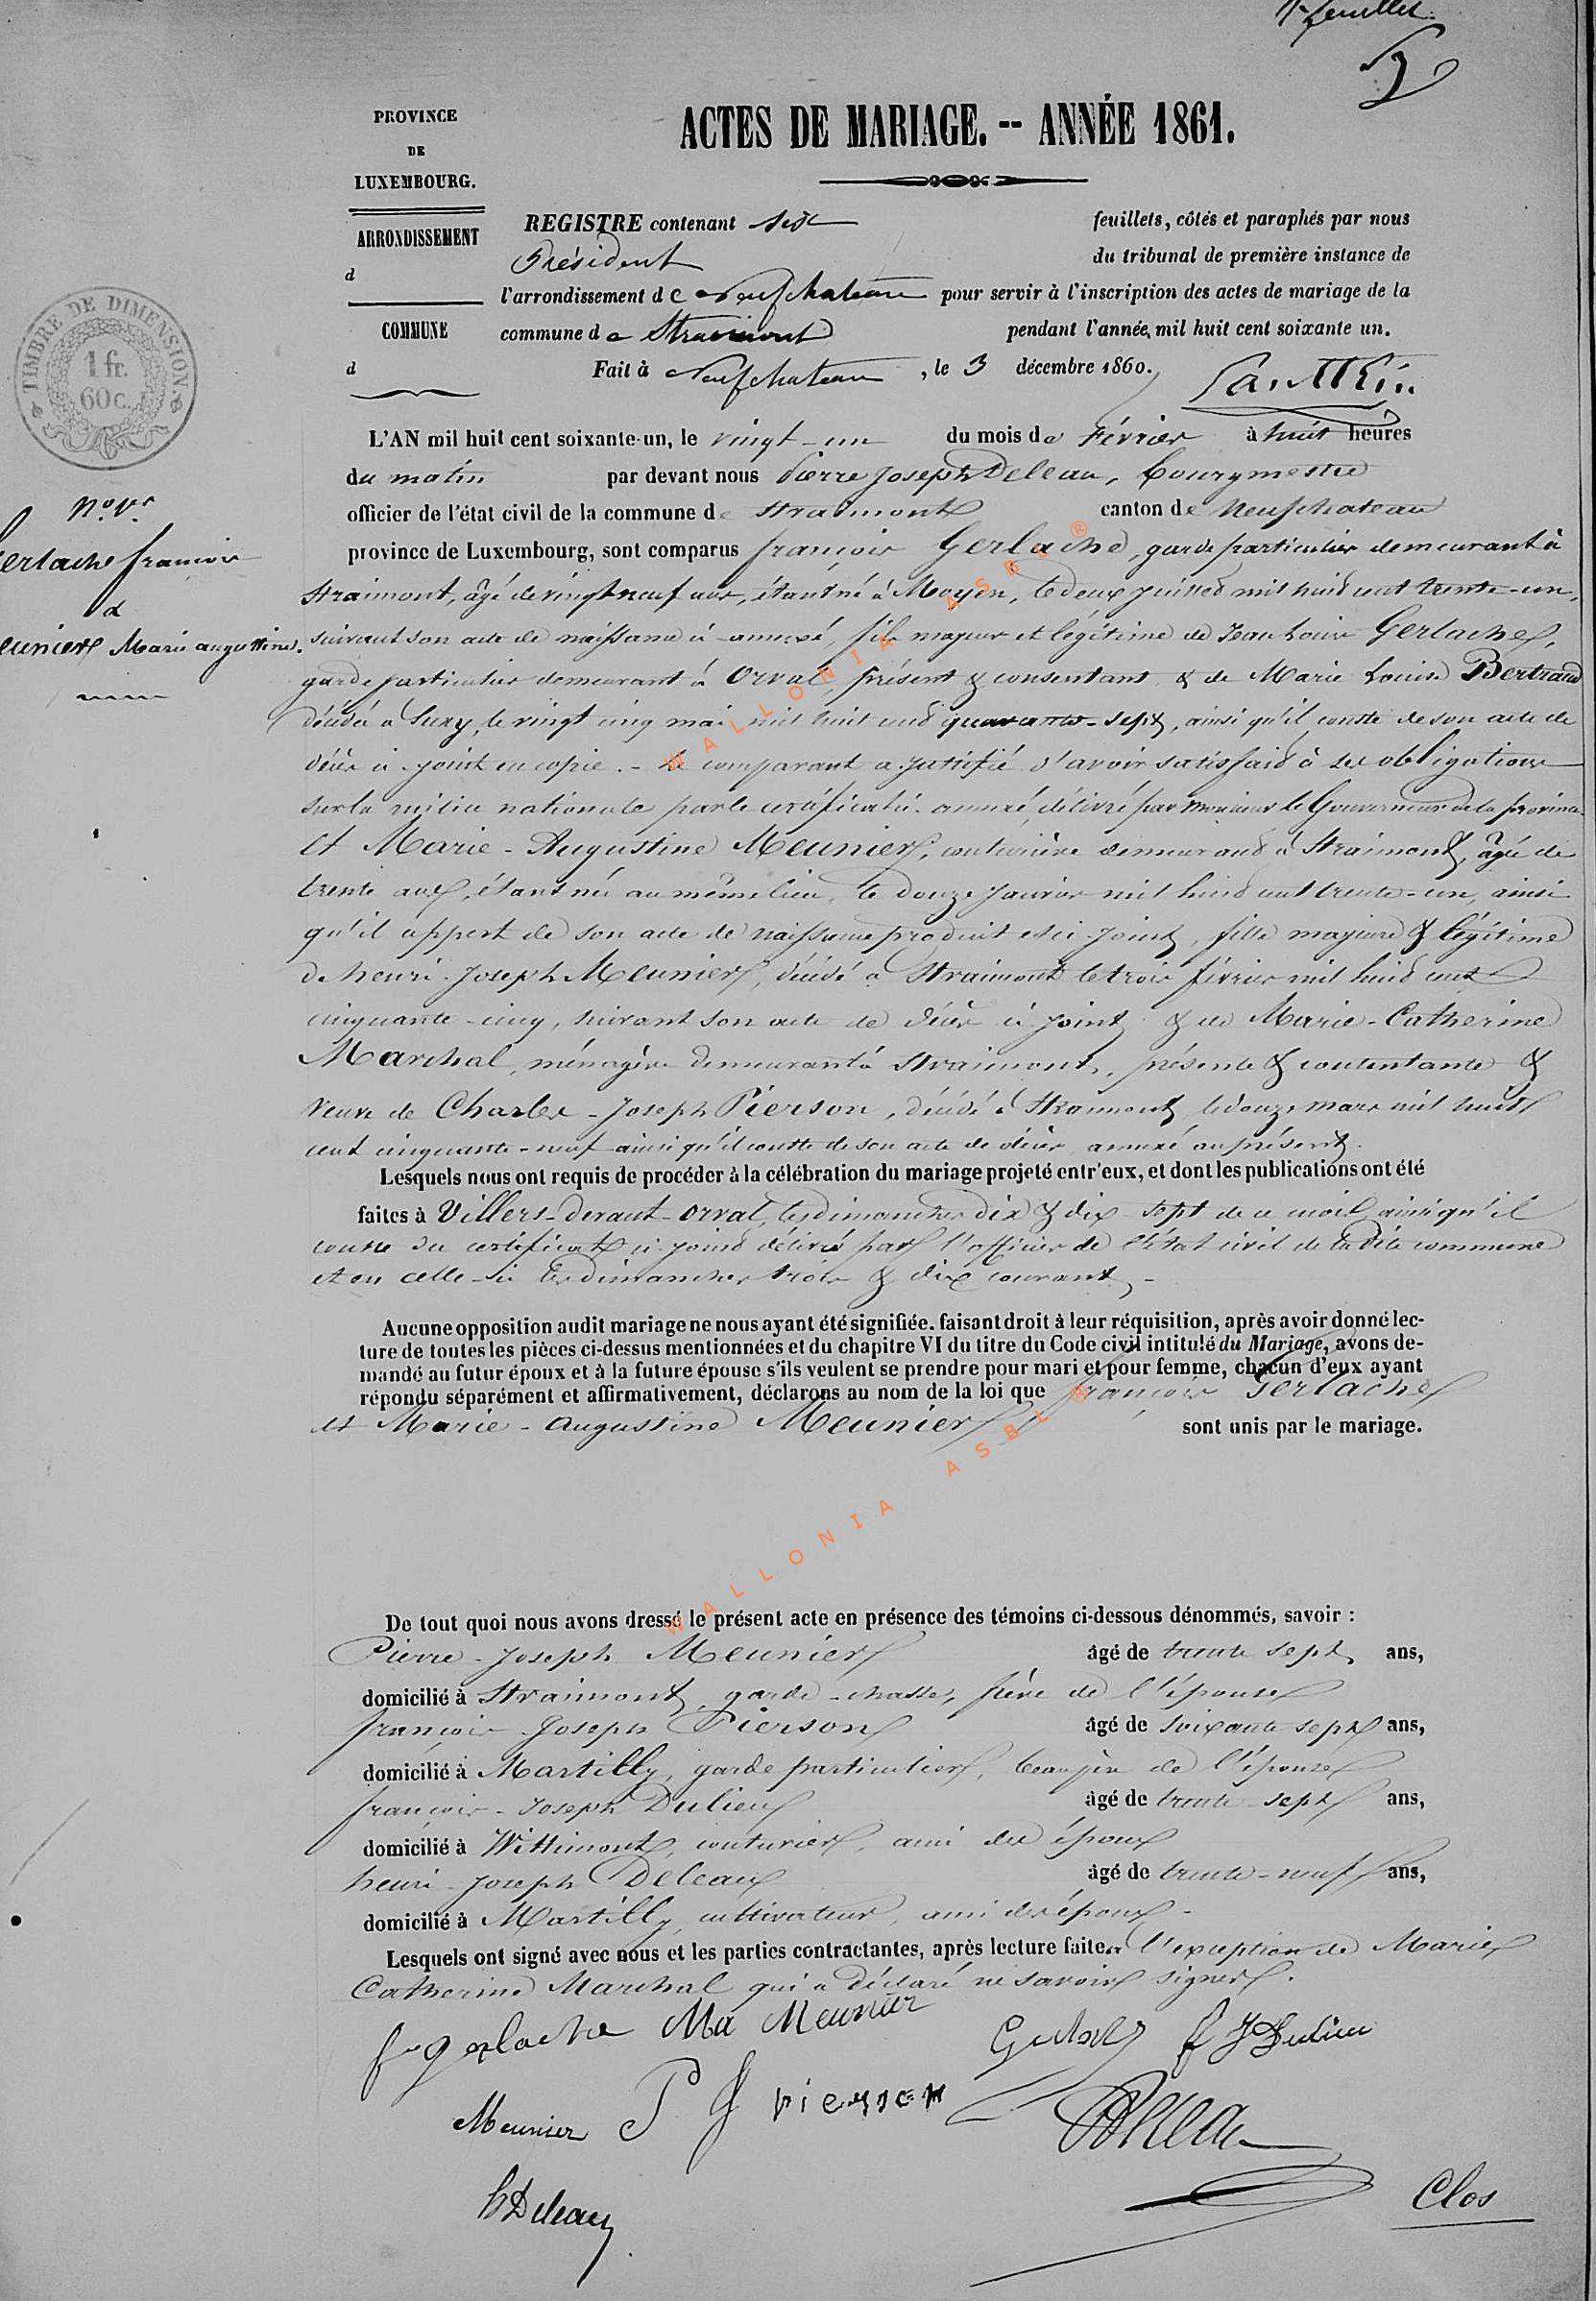 1er feuillet.
PROVINCE
DE
LUXEMBOURG.
ACTES DE MARIAGE. -- ANNÉE 1861.
ARRONDISSEMENT
d
COMMUNE
d
REGISTRE contenant six feuillets, côtés et paraphés par nous
Président du tribunal de première instance de
l'arrondissement de Neufchateau pour servir à l'inscription des actes de mariage de la
commune de Straimont pendant l'année mil huit cent soixante un.
Fait à Neufchateau, le 3 décembre 1860.
TIMBRE DE DIMENSION
1 fr.
60 c.
L'AN mil huit cent soixante-un, le vingt-un du mois de Février à huit heures
du matin par devant nous Pierre Joseph Deleau, bourgmestre
officier de l'état civil de la commune de Straimont canton de Neufchateau
province de Luxembourg, sont comparus françois Gerlache, garde particulier demeurant à
Straimont, âgé de vingt neuf ans, étant né à Moyen, le deux juillet mil huit cent trente-un,
suivant son acte de naissance ci-annexé, fils majeur et légitime de Jean Louis Gerlache,
garde particulier demeurant à Orval, présent & consentant & de Marie Louise Bertrand
décédée à Suxy, le vingt cinq mai mil huit cent quarante-sept, ainsi qu'il conste de son acte de
décès ci-joint en copie. - Le comparant a justifié d'avoir satisfait à ses obligations
sur la milice nationale par le certificat ci-annexé, délivré par Monsieur le Gouverneur de la province
Et Marie-Augustine Meunier, couturière demeurant à Straimont, âgée de
trente ans, étant née au même lieu, le douze Janvier mil huit cent trente-un, ainsi
qu'il appert de son acte de naissance produit et ci-joint, fille majeure & légitime
de henri-Joseph Meunier, décédé à Straimont le trois février mil huit cent
cinquante-cinq, suivant son acte de décès ci-joint & de Marie-Catherine
Marchal, ménagère demeurant à Straimont, présente & contentante &
Veuve de Charles-Joseph Pierson, décédé à Straimont, le douze mars mil huit
cent cinquante-neuf ainsi qu'il conste de son acte de décès annexé au présent.
No 1er
Gerlache françois
&
Meunier Marie augustine.
Lesquels nous ont requis de procéder à la célébration du mariage projeté entr'eux, et dont les publications ont été
faites à Villers-devant-Orval, les dimanches dix & dix-sept de ce mois, ainsi qu'il
conste du certificat ci-joint délivré par l'officier de l'état civil de la dite commune
et en celle-ci les dimanches trois & dix courant. -
Aucune opposition audit mariage ne nous ayant été signifiée. faisant droit à leur réquisition, après avoir donné lec-
ture de toutes les pièces ci-dessus mentionnées et du chapitre VI du titre du Code civil intitulé du Mariage, avons de-
mandé au futur époux et à la future épouse s'ils veulent se prendre pour mari et pour femme, chacun d'eux ayant
répondu séparément et affirmativement, déclarons au nom de la loi que françois Gerlache
et Marie-augustine Meunier sont unis par le mariage.
De tout quoi nous avons dressé le présent acte en présence des témoins ci-dessous dénommés, savoir :
Pierre-Joseph Meunier âgé de trente sept ans,
domicilié à Straimont, garde-chasse, frère de l'épouse
françois-Joseph Pierson âgé de soixante sept ans,
domicilié à Martilly, garde particulier, beau père de l'épouse
françois-Joseph Dulieu âgé de trente-sept ans,
domicilié à Wittimont, couturier, ami des époux
henri-Joseph Deleau âgé de trente-neuf ans,
domicilié à Martilly, cultivateur, ami des époux-
Lesquels ont signé avec nous et les parties contractantes, après lecture faite à l'exception de Marie
Catherine Marchal qui a déclaré ne savoir signer.
f gerlache Ma Meunier
f J Dulieu
Meunier
P J pierson
h Deleau
Clos
WALLONIA ASBL ®
WALLONIA ASBL ®